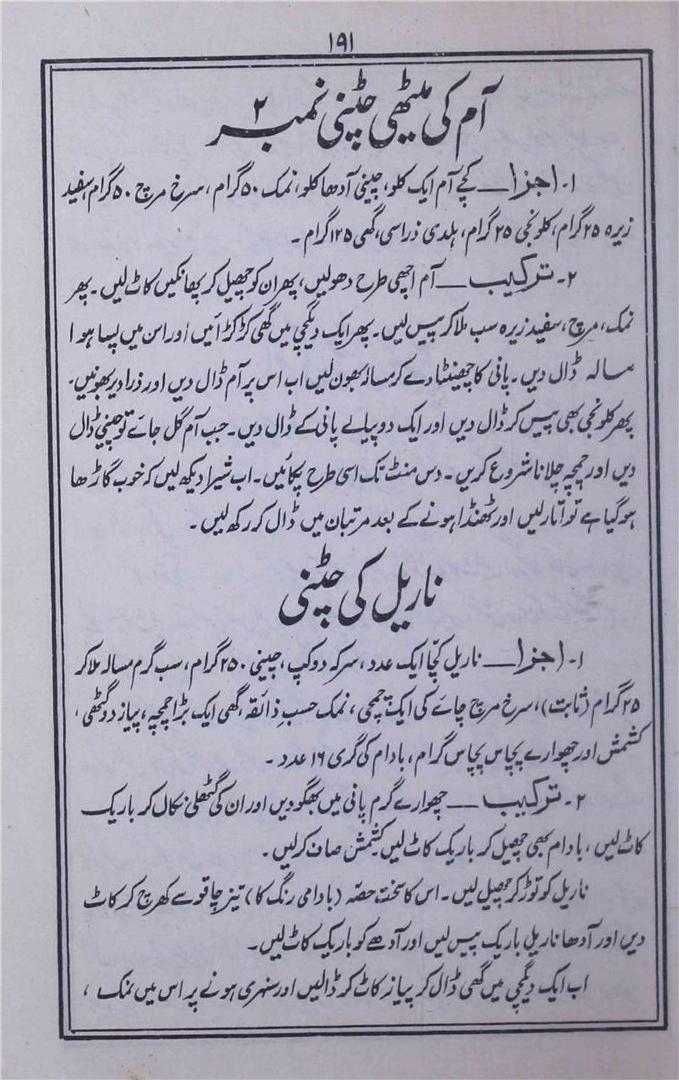 ۱۹۱
آم کی میٹھی چٹنی نمبر ۲
۱۔ اجزا ــــ کچے آم ایک کلو، چینی آدھا کلو، نمک ۵۰ گرام، سرخ مرچ ۵۰ گرام، سفید
زیرہ ۲۵ گرام، کلونجی ۲۵ گرام، ہلدی ذراسی، گھی ۱۲۵ گرام۔
۲۔ ترکیب ــــ آم اچھی طرح دھولیں، پھر ان کو چھیل کر پھانکیں کاٹ لیں۔ پھر
نمک، مرچ، سفید زیرہ سب ملا کر پیس لیں۔ پھر ایک دیگچی میں گھی کڑکڑائیں اور اس میں پسا ہوا
مسالہ ڈال دیں۔ پانی کا چھینٹا دے کر مسالہ بھون لیں اب اس پر آم ڈال دیں اور ذرا دیر بھونیں۔
پھر کلونجی بھی پیس کر ڈال دیں اور ایک دو پیالے پانی کے ڈال دیں۔ جب آم گل جائے تو چینی ڈال
دیں اور چمچہ چلانا شروع کریں۔ دس منٹ تک اسی طرح پکائیں۔ اب شیرا دیکھ لیں کہ خوب گاڑھا
ہو گیا ہے تو اتار لیں اور ٹھنڈا ہونے کے بعد مرتبان میں ڈال کر رکھ لیں۔
ناریل کی چٹنی
۱۔ اجزا ــــ ناریل کچا ایک عدد، سرکہ دو کپ، چینی ۲۵۰ گرام، سب گرم مسالہ ملا کر
۲۵ گرام (ثابت)، سرخ مرچ چائے کی ایک چمچی، نمک حسب ذائقہ، گھی ایک بڑا چمچہ، پیاز دو گٹھی،
کشمش اور چھوارے پچاس پچاس گرام، بادام کی گری ۱۶ عدد۔
۲۔ ترکیب ــــ چھوارے گرم پانی میں بھگو دیں اور ان کی گٹھلی نکال کر باریک
کاٹ لیں، بادام بھی چھیل کر باریک کاٹ لیں کشمش صاف کر لیں۔
ناریل کو توڑ کر چھیل لیں۔ اس کا سخت حصہ (بادامی رنگ کا) تیز چاقو سے کھرچ کر کاٹ
دیں اور آدھا ناریل باریک پیس لیں اور آدھے کو باریک کاٹ لیں۔
اب ایک دیگچی میں گھی ڈال کر پیاز کاٹ کر ڈالیں اور سنہری ہونے پر اس میں نمک،